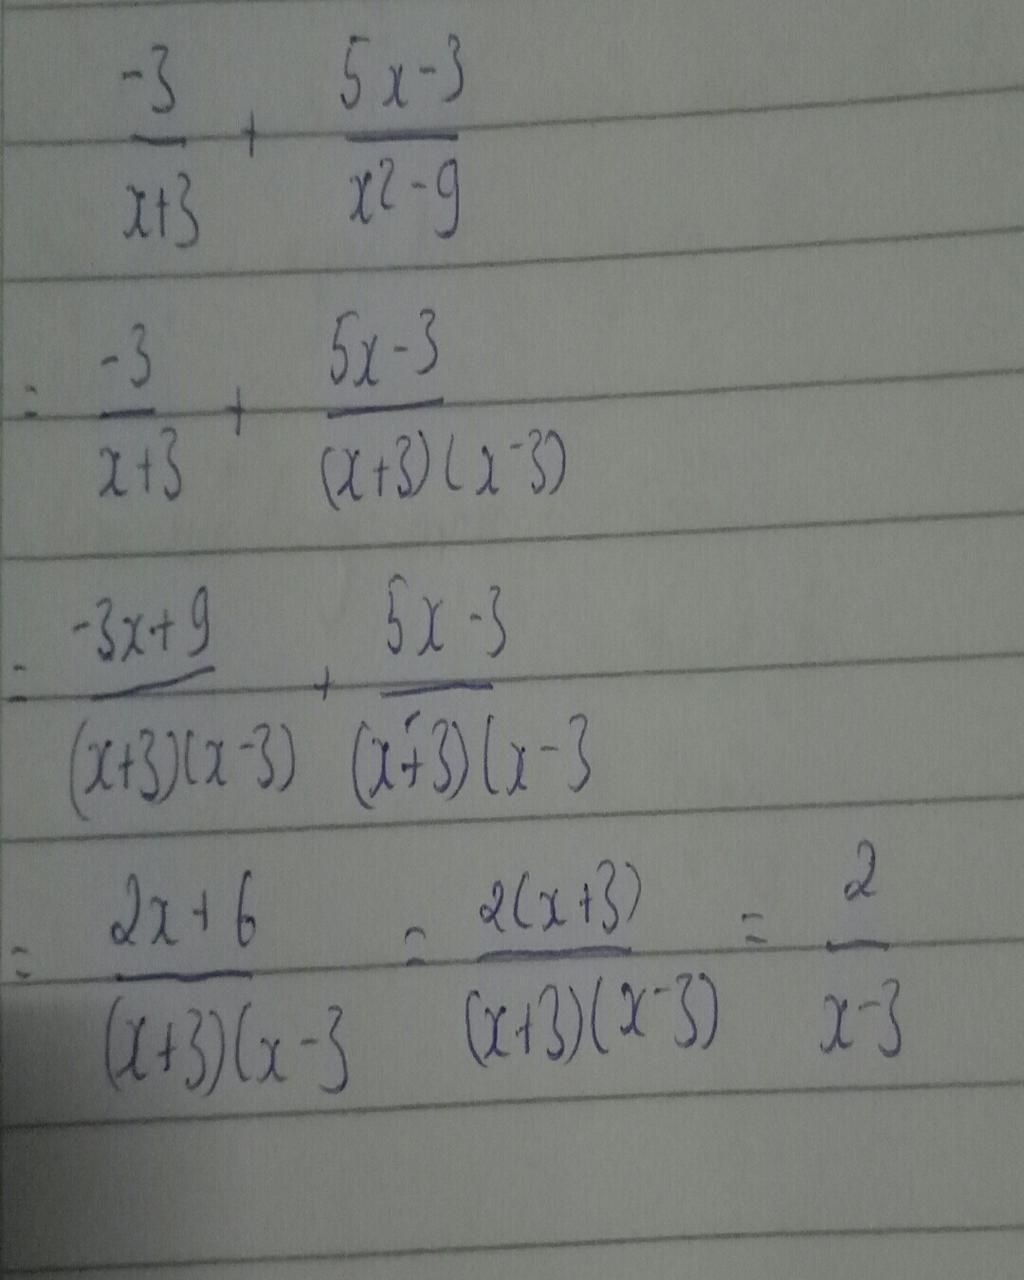 -3/(x+3) + (5x-3)/(x²-9)
= -3/(x+3) + (5x-3)/((x+3)(x-3))
= (-3x+9)/((x+3)(x-3)) + (5x-3)/((x+3)(x-3
= (2x+6)/((x+3)(x-3 = 2(x+3)/((x+3)(x-3)) = 2/(x-3)